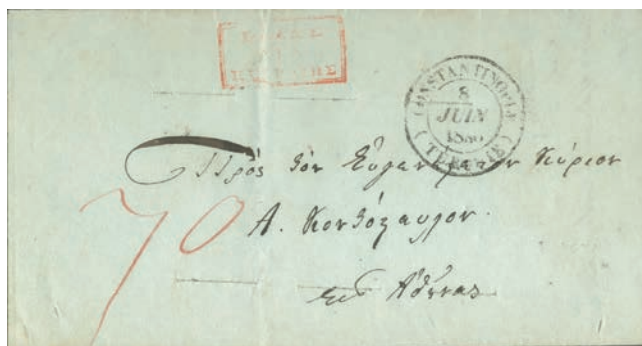 CONSTANTINOPLE
8
JUIN
(TURQUIE)
Πρὸς τὸν Εὐγενέστατον Κύριον
70
Α. Κοντόσταυλον.
εἰς Ἀθήνας